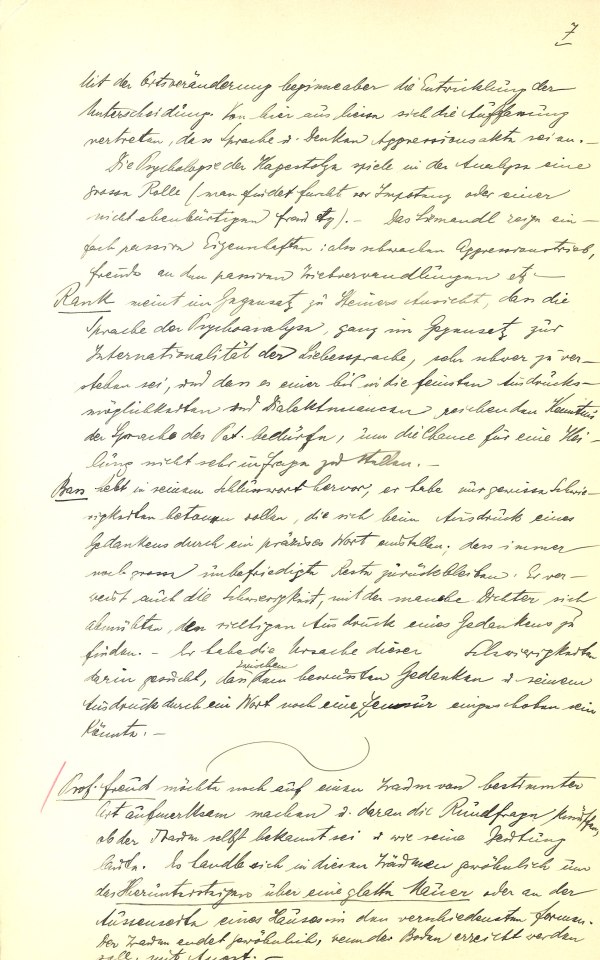 7
Mit der Ortsveränderung beginne aber die Entwicklung der
Unterscheidung. Von hier aus liesse sich die Auffassung
vertreten, dass Sprache u. Denken Aggressionsakte seien. —
Die Psychologie der Hagestolze spiele in der Analyse eine
grosse Rolle (man findet furcht vor Impotenz oder einer
nicht ebenbürtigen frau etz). — Das Simandl zeige ein-
fach passive Eigenschaften: also schwachen Aggressionstrieb,
freude an den passiven Triebverwandlungen etz —
Rank meint im Gegensatz zu Steiners Ansicht, dass die
Sprache der Psychoanalyse, ganz im Gegensatz zur
Internationalität der Liebessprache, sehr schwer zu ver-
stehen sei, und dass es einer bis in die feinsten Ausdrucks-
möglichkeiten und Dialektnuancen reichenden Kenntnis
der Sprache des Pat. bedürfe, um die Chance für eine Hei-
lung nicht sehr in frage zu stellen. —
Bass hebt in seinem Schlusswort hervor, er habe nur gewisse Schwie-
rigkeiten betonen wollen, die sich beim Ausdruck eines
Gedankens durch ein präzises Wort einstellen. dass immer
noch grosse unbefriedigte Reste zurückbleiben. Er ver-
weist auch die Schwierigkeit, mit der manche Dichter sich
abmühten, den richtigen Ausdruck eines Gedankens zu
finden. — Er habe die Ursache dieser Schwierigkeiten
darin gesucht, dass zwischen dem bewussten Gedanken u. seinem
Ausdruck durch ein Wort noch eine Zensur eingeschoben sein
könnte. —
Prof. freud möchte noch auf einen Traum von bestimmter
Art aufmerksam machen u. daran die Rundfrage knüpfen,
ob der Traum selbst bekannt sei u wie seine Deutung
laute. Es handle sich in diesen Träumen gewöhnlich um
das Heruntersteigen über eine glatte Mauer oder an der
Aussenseite eines Hauses in den verschiedensten formen.
Der Traum endet gewöhnlich, wenn der Boden erreicht werden
soll, mit Angst. —